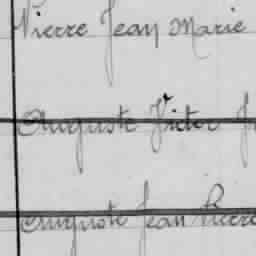 Pierre Jean Marie
Auguste Victor
Auguste Jean Pierre